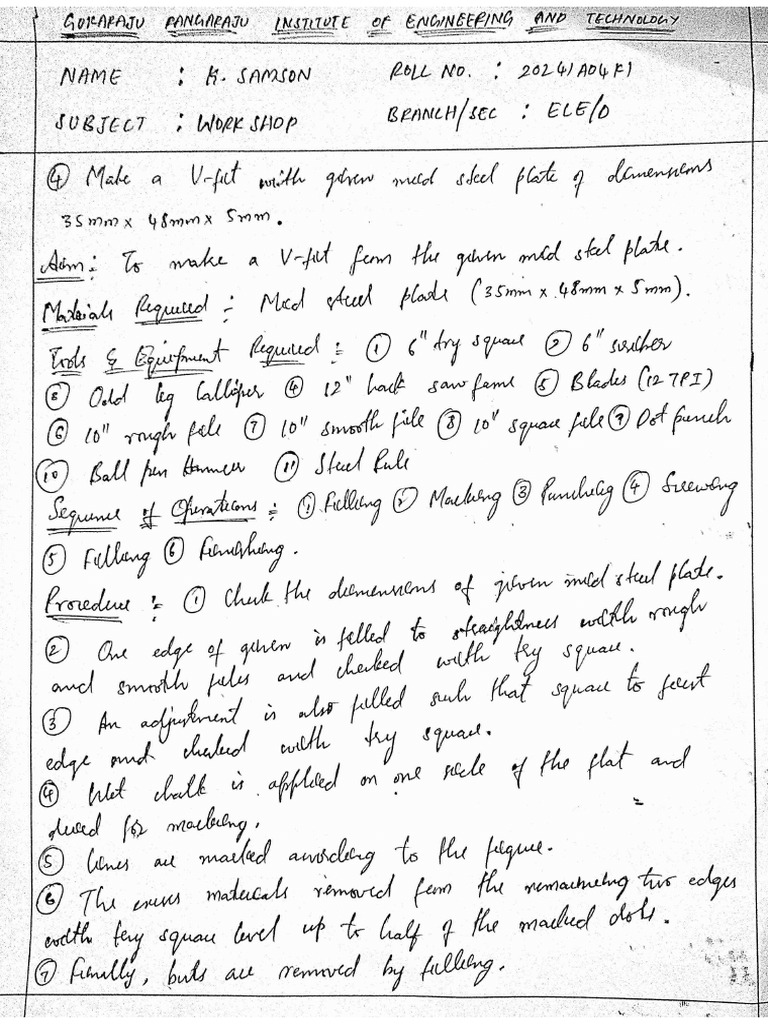 GOKARAJU RANGARAJU INSTITUTE OF ENGINEERING AND TECHNOLOGY
NAME : K. SAMSON ROLL NO. : 20241A04K1
SUBJECT : WORKSHOP BRANCH/SEC : ECE/D
④ Make a V-fit with given mild steel plate of dimensions
35mm x 48mm x 5mm.
Aim : To make a V-fit from the given mild steel plate.
Materials Required :- Mild steel plate (35mm x 48mm x 5mm).
Tools & Equipment Required := ① 6" try square ② 6" scriber
③ Odd leg Calliper ④ 12" hack saw frame ⑤ Blades (12 TPI)
⑥ 10" rough file ⑦ 10" smooth file ⑧ 10" square file ⑨ Dot punch
⑩ Ball pen Hammer ⑪ Steel Rule
Sequence of Operations := ① Filling ② Marking ③ Punching ④ Sawing
⑤ Filling ⑥ Finishing.
Procedure := ① Check the dimensions of given mild steel plate.
② One edge of given is filled to straightness with rough
and smooth files and checked with try square.
③ An adjustment is also filled such that square to first
edge and checked with try square.
④ Wet chalk is applied on one side of the flat and
dried for marking.
⑤ Lines are marked according to the figure.
⑥ The excess materials removed from the remaining two edges
with try square level up to half of the marked dots.
⑦ Finally, buts are removed by filling.